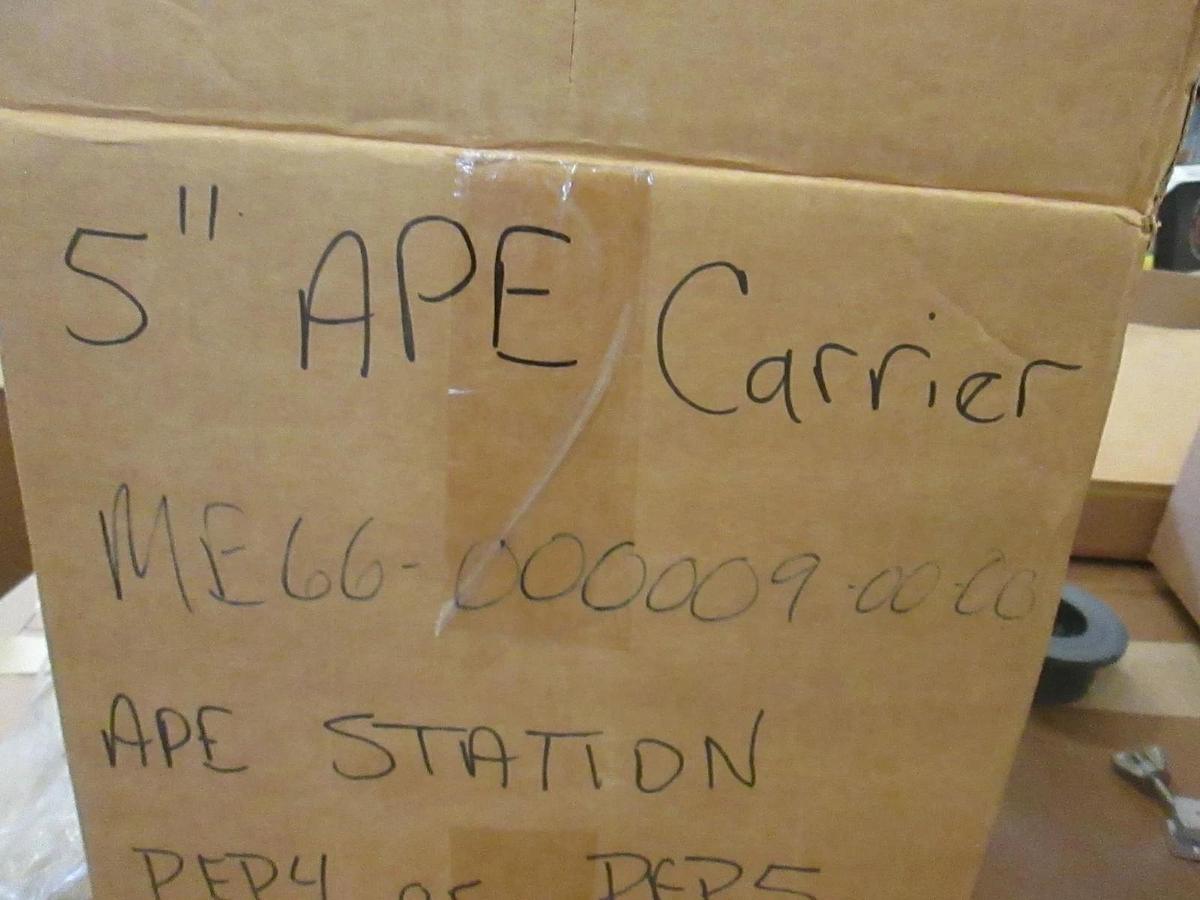 5" APE Carrier
ME66-000009-00-00
APE STATION
PEP4 or PEP5